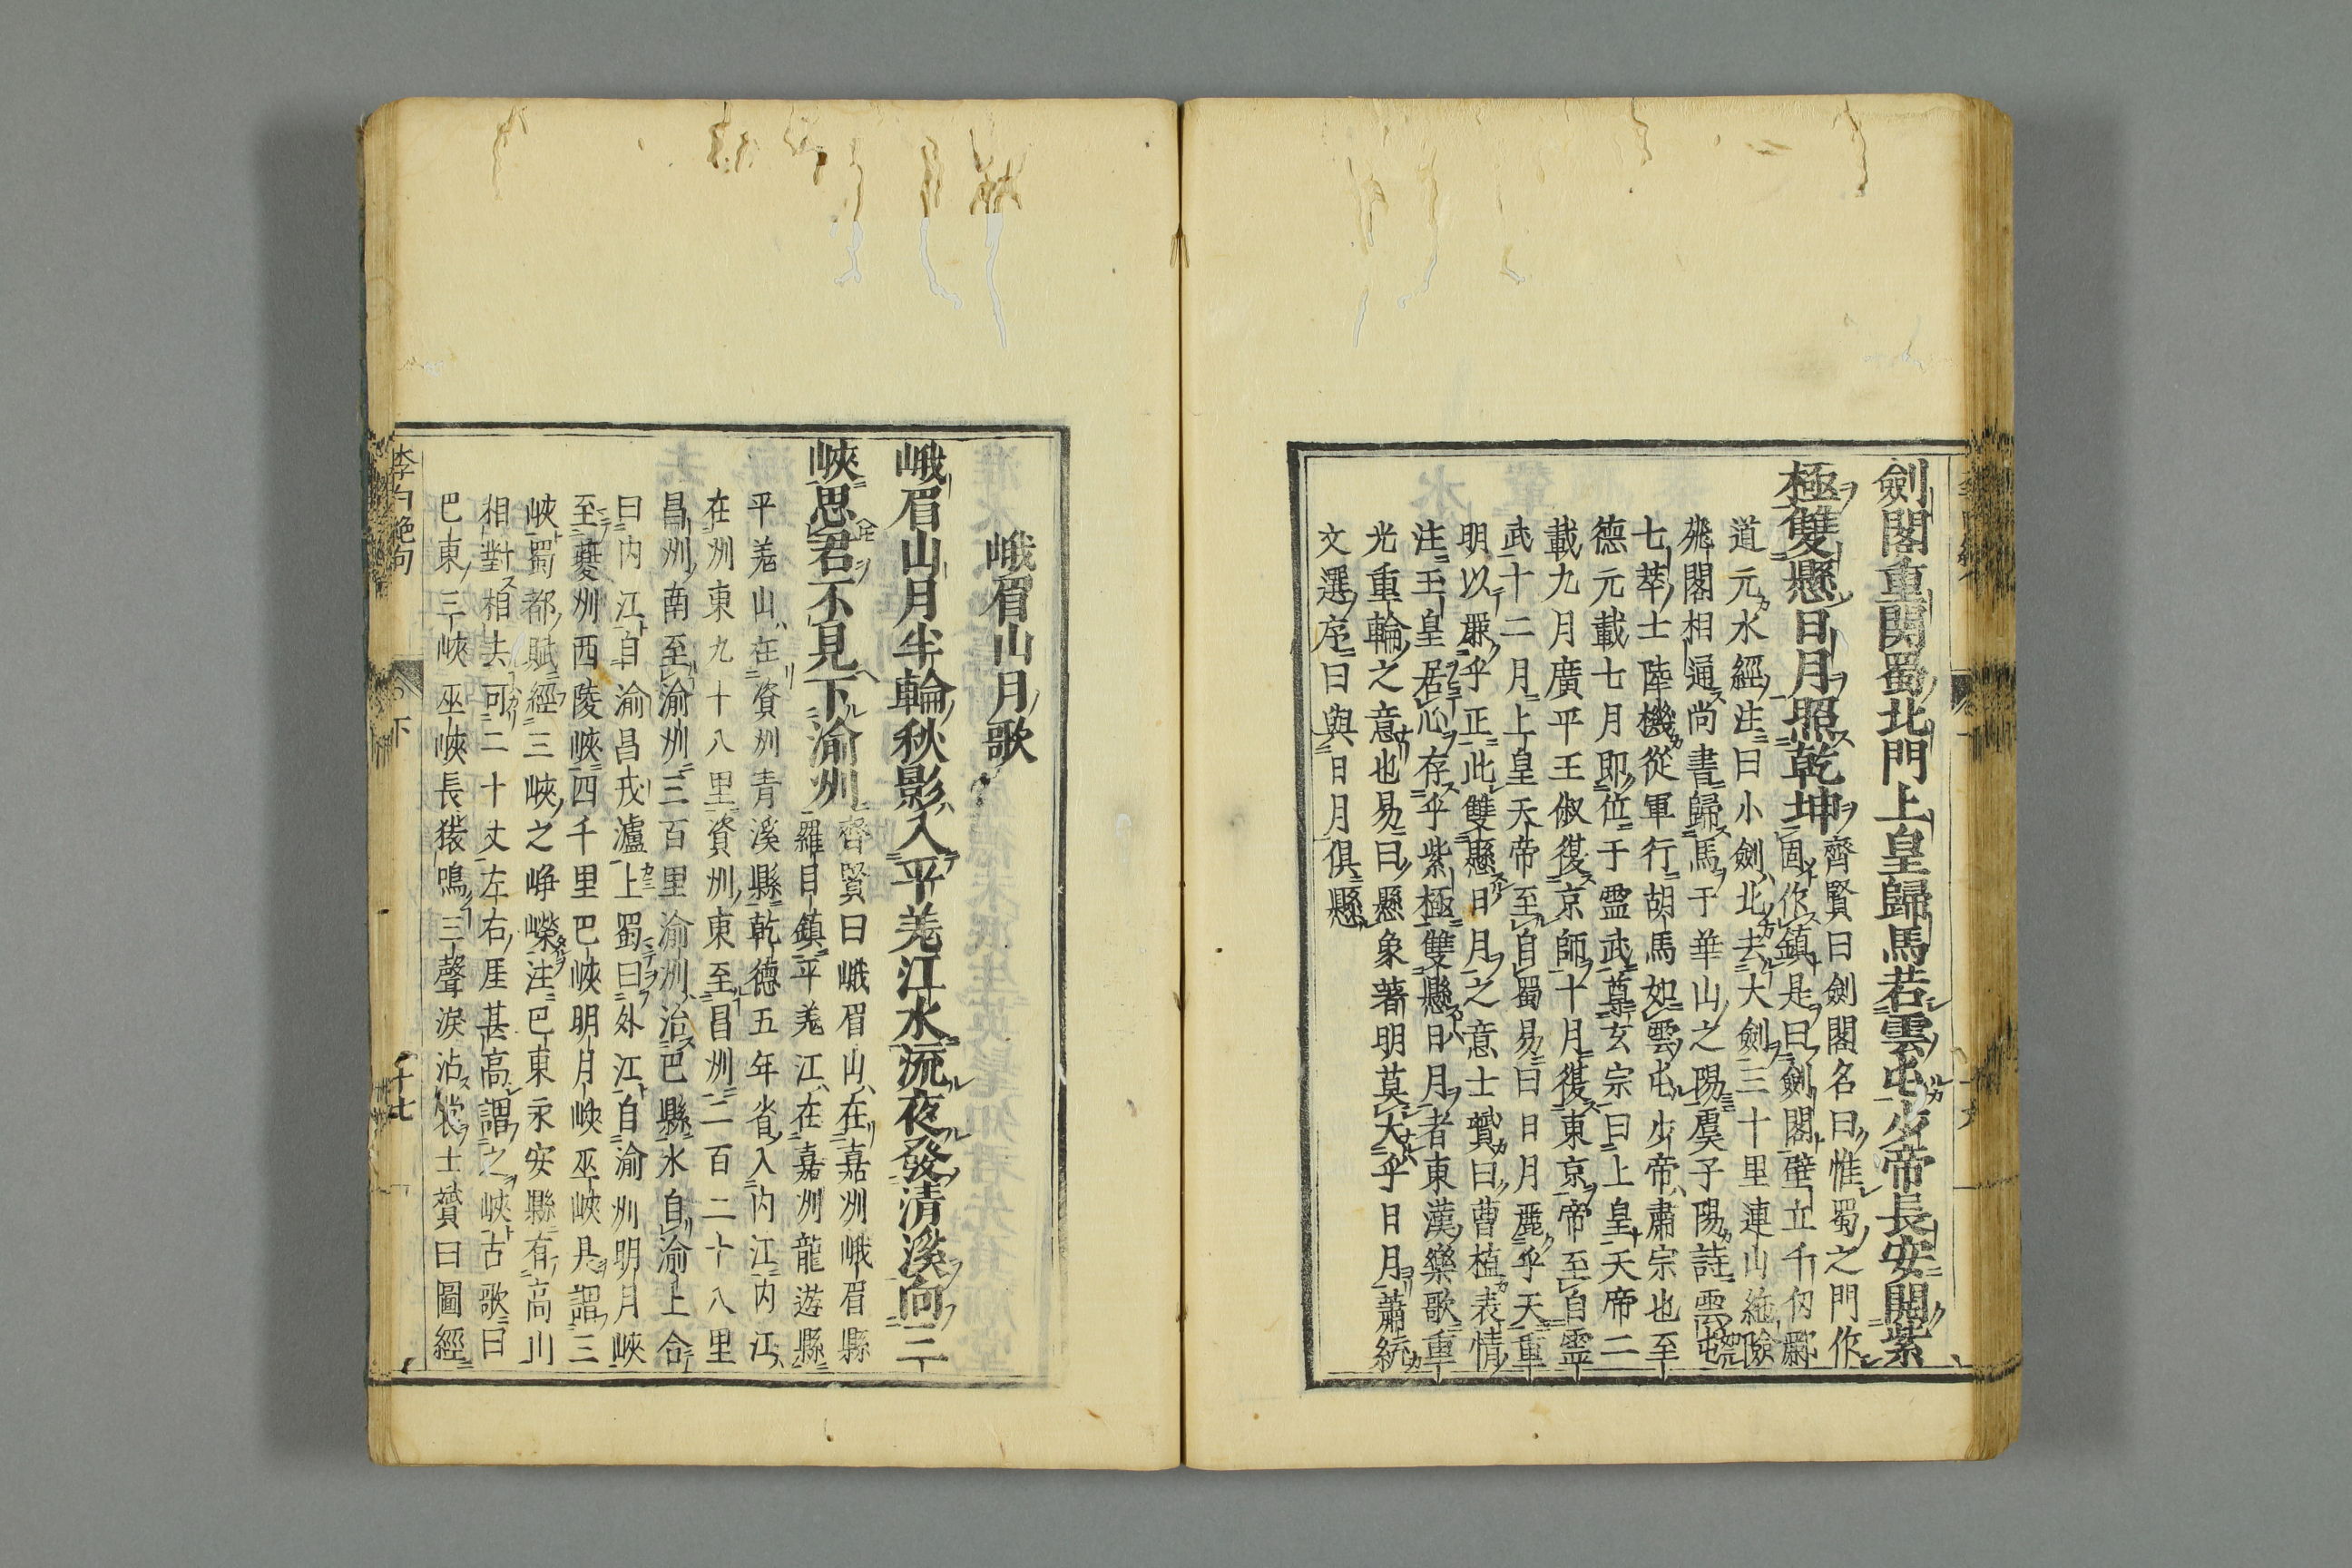 劍閣重關蜀北門上皇歸馬若雲屯少帝長安開紫
極雙懸日月照乾坤 齊賢曰劍閣名曰惟蜀之門作
固作鎮是曰劍閣壁立千仞酈
道元水經注曰小劍北去大劍三十里連山絶險
飛閣相通尚書歸馬于華山之陽虞子陽註雲屯
七萃士陸機從軍行胡馬如雲屯少帝肅宗也至
德元載七月即位于靈武尊玄宗曰上皇天帝二
載九月廣平王俶復京師十月復東京帝至自靈
武十二月上皇天帝至自蜀易曰日月麗乎天重
明以麗乎正此雙懸日月之意士贇曰曹植表情
注王皇居心存乎紫極雙懸日月者東漢樂歌重
光重輪之意也易曰懸象著明莫大乎日月蕭統
文選序曰與日月俱懸
峨眉山月歌
峨眉山月半輪秋影入平羌江水流夜發清溪向三
峽思君不見下渝州 齊賢曰峨眉山在嘉州峨眉縣
羅目鎮平羌江在嘉州龍遊縣
平羌山在資州青溪縣乾德五年省入内江内江
在州東九十八里資州東至昌州二百二十八里
昌州南至渝州三百里渝州治巴縣水自渝上合
曰内江自渝昌戎瀘上蜀曰外江自渝州明月峽
至夔州西陵峽四千里巴峽明月峽巫峽具謂三
峽蜀都賦經三峽之崢嶸注巴東永安縣有高川
相對相去可二十丈左右厓甚高謂之峽古歌曰
巴東三峽巫峽長猿鳴三聲淚沾裳士贇曰圖經
李白絶句
下
十七